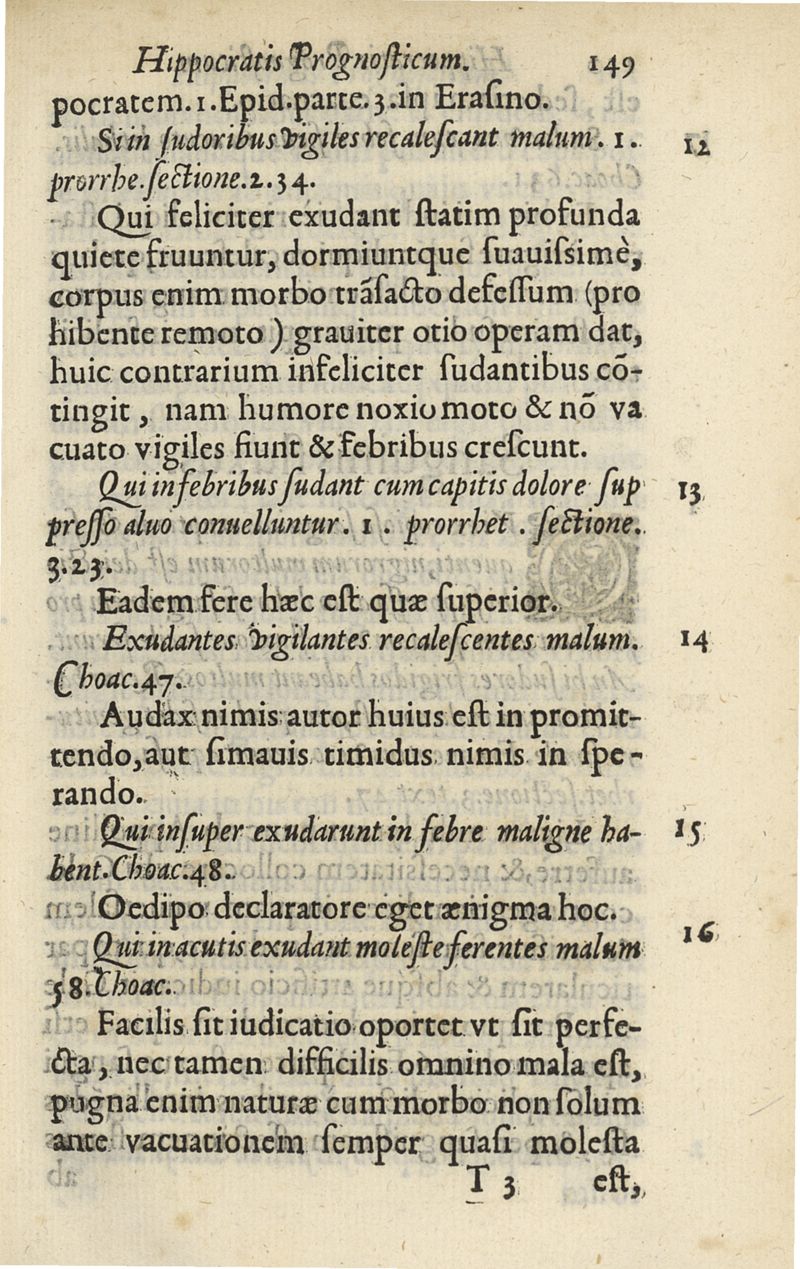 Hippocratis Prognosticum. 149
pocratem. 1. Epid. parte. 3. in Erasino.
Si in sudoribus vigiles recalescant malum. 1. 12
prorrhe. sectione. 2. 34.
Qui feliciter exudant statim profunda
quiete fruuntur, dormiuntque suauissimè,
corpus enim morbo trãsacto defessum (pro
hibente remoto) grauiter otio operam dat,
huic contrarium infeliciter sudantibus cõ-
tingit, nam humore noxio moto & nõ va
cuato vigiles fiunt & febribus crescunt.
Qui in febribus sudant cum capitis dolore sup 13
presso aluo conuelluntur. 1. prorrhet. sectione.
3. 23.
Eadem fere hæc est quæ superior.
Exudantes vigilantes recalescentes malum. 14
Choac. 47.
Audax nimis autor huius est in promit-
tendo, aut simauis timidus nimis in spe-
rando.
Qui insuper exudarunt in febre maligne ha- 15
bent. Choac. 48.
Oedipo declaratore eget ænigma hoc.
Qui in acutis exudant moleste ferentes malum 16
58. Choac.
Facilis sit iudicatio oportet vt sit perfe-
cta, nec tamen difficilis omnino mala est,
pugna enim naturæ cum morbo non solum
ante vacuationem semper quasi molesta
T 3 est,